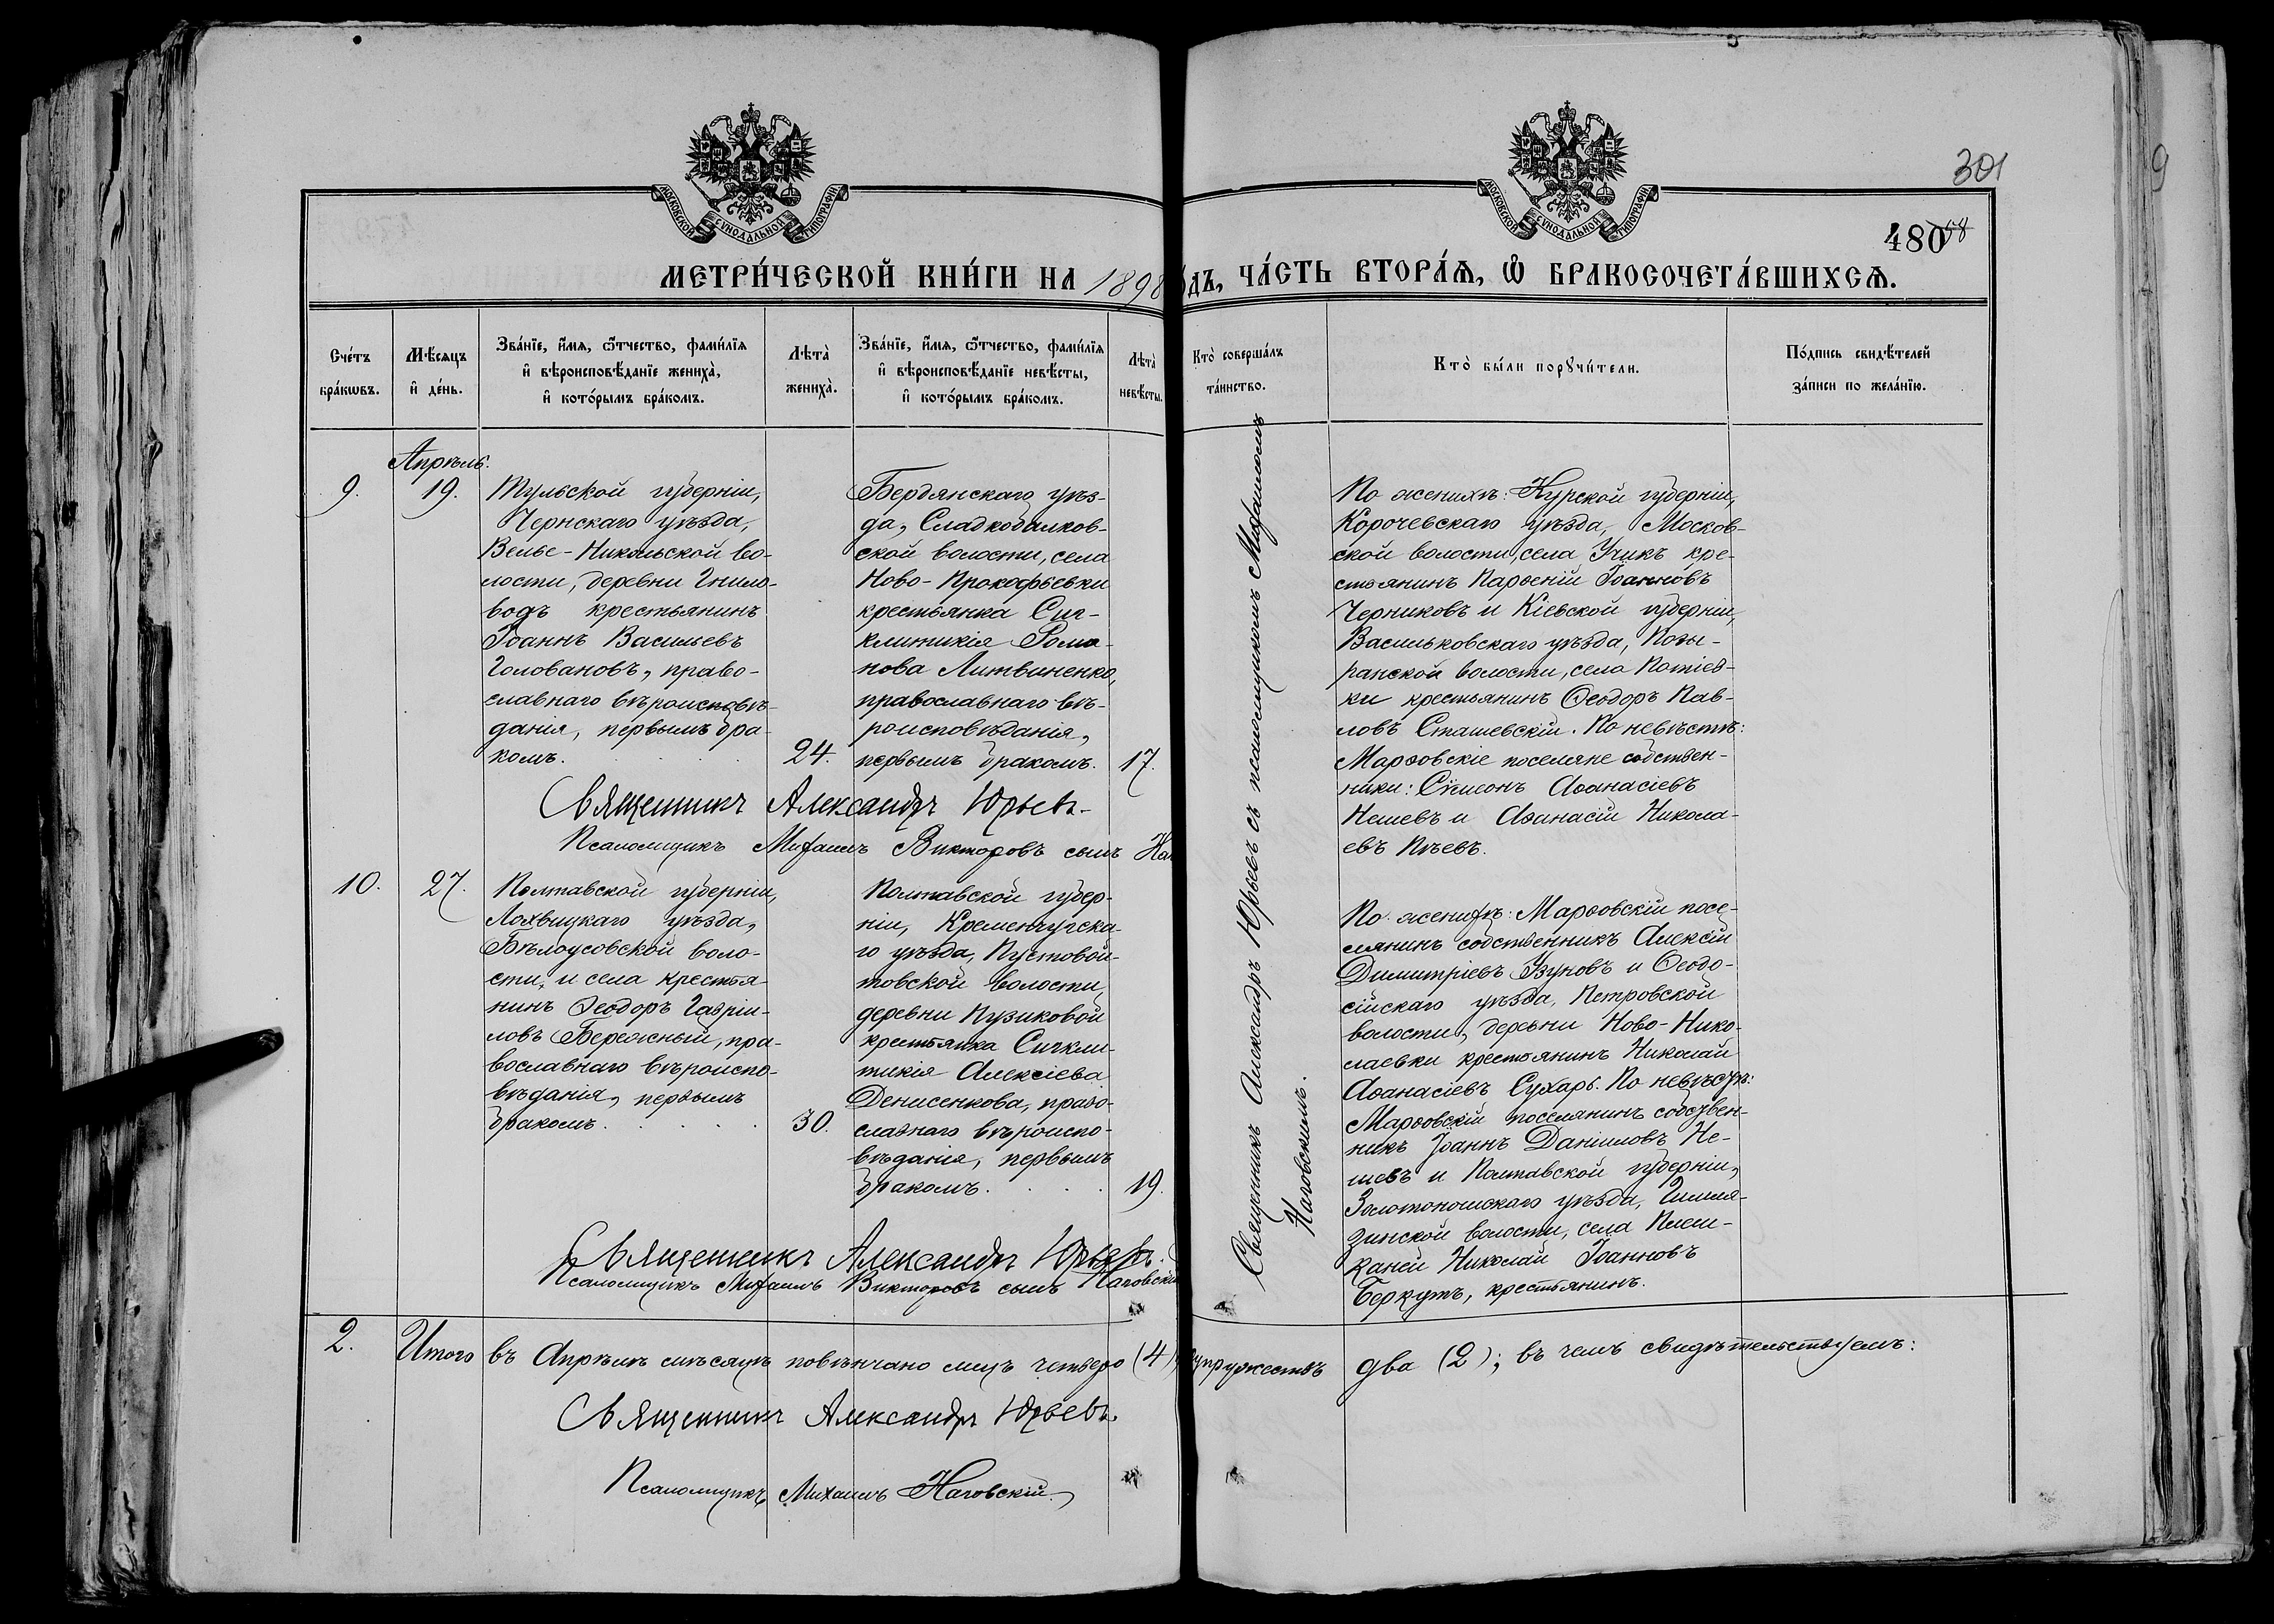 МОСКОВСКОЙ СУНОДАЛЬНОЙ ТИПОГРАФІИ
МОСКОВСКОЙ СУНОДАЛЬНОЙ ТИПОГРАФІИ
301
480
МЕТРИ́ЧЕСКОЙ КНИ́ГИ НА 1898 го́дъ, ЧА́СТЬ ВТОРА́Ѧ, Ѽ БРАКОСОЧЕТА́ВШИХСѦ.
Сче́тъ
бра́кѡвъ.
Мѣ́сяцъ
и҆ де́нь.
Зва́нїе, и҆́мѧ, ѻ҆́тчество, фами́лїѧ
и҆ вѣроисповѣ́данїе жениха̀,
и҆ кото́рымъ бра́комъ.
Лѣта̀
жениха̀.
Зва́нїе, и҆́мѧ, ѻ҆́тчество, фами́лїѧ
и҆ вѣроисповѣ́данїе невѣ́сты,
и҆ кото́рымъ бра́комъ.
Лѣта̀
невѣ́сты.
Кто̀ соверша́лъ
та́инство.
Кто̀ бы́ли порꙋчи́тели.
По́дпись свидѣ́телей
за́писи по жела́нїю.
Апрѣль.
9.
19.
Тульской губерніи,
Чернскаго уѣзда,
Велье-Никольской во-
лости, деревни Гнило-
водъ крестьянинъ
Іоаннъ Васильевъ
Головановъ, право-
славнаго вѣроисповѣ-
данія, первымъ бра-
комъ.
24.
Бердянскаго уѣз-
да, Сладкобалков-
ской волости, села
Ново-Прокофьевки
крестьянка Син-
клитикія Рома-
нова Литвиненко,
православнаго вѣ-
роисповѣданія,
первымъ бракомъ.
17.
По женихѣ: Курской губерніи,
Корочевскаго уѣзда, Москов-
ской волости, села кре-
стьянинъ Парѳеній Іоанновъ
Черниковъ и Кіевской губерніи,
Васильковскаго уѣзда,
волости, села Потіев-
ки крестьянинъ Ѳеодоръ Пав-
ловъ Сташевскій. По невѣстѣ:
Марѳовскіе поселяне собствен-
ники: Сѵмеонъ Аѳанасіевъ
Нешевъ и Аѳанасій Никола-
евъ Пѣевъ.
Священникъ Александръ Юрьевъ.
Псаломщикъ Михаилъ Викторовъ сынъ
10.
27.
Полтавской губерніи,
Лохвицкаго уѣзда,
Бѣлоусовской воло-
сти, и села крестья-
нинъ Ѳеодоръ Гавріи-
ловъ Бережный, пра-
вославнаго вѣроиспо-
вѣданія, первымъ
бракомъ.
30.
Полтавской губер-
ніи, Кременчугска-
го уѣзда, Пустовой-
товской волости,
деревни Пузиковой
крестьянка Синкли-
тикія Алексіева
Денисенкова, право-
славнаго вѣроиспо-
вѣданія, первымъ
бракомъ.
19.
По женихѣ: Марѳовскій посе-
лянинъ собственникъ Алексій
Димитріевъ Узуновъ и Ѳеодо-
сійскаго уѣзда, Петровской
волости, деревни Ново-Нико-
лаевки крестьянинъ Николай
Аѳанасіевъ Сухарь. По невѣстѣ:
Марѳовскій поселянинъ собствен-
никъ Іоаннъ Даніиловъ Не-
шевъ и Полтавской губерніи,
Золотоношскаго уѣзда, Гельмя-
зинской волости, села Плеш-
каней Николай Іоанновъ
Беркутъ, крестьянинъ.
Священникъ Александръ Юрьевъ съ псаломщикомъ Михаиломъ
Наговскимъ.
Священникъ Александръ Юрьевъ.
Псаломщикъ Михаилъ Викторовъ сынъ Наговскій
2.
Итого въ Апрѣлѣ мѣсяцѣ повѣнчано лицъ четверо (4), супружествъ два (2); въ чемъ свидѣтельствуемъ:
Священникъ Александръ Юрьевъ.
Псаломщикъ Михаилъ Наговскій.